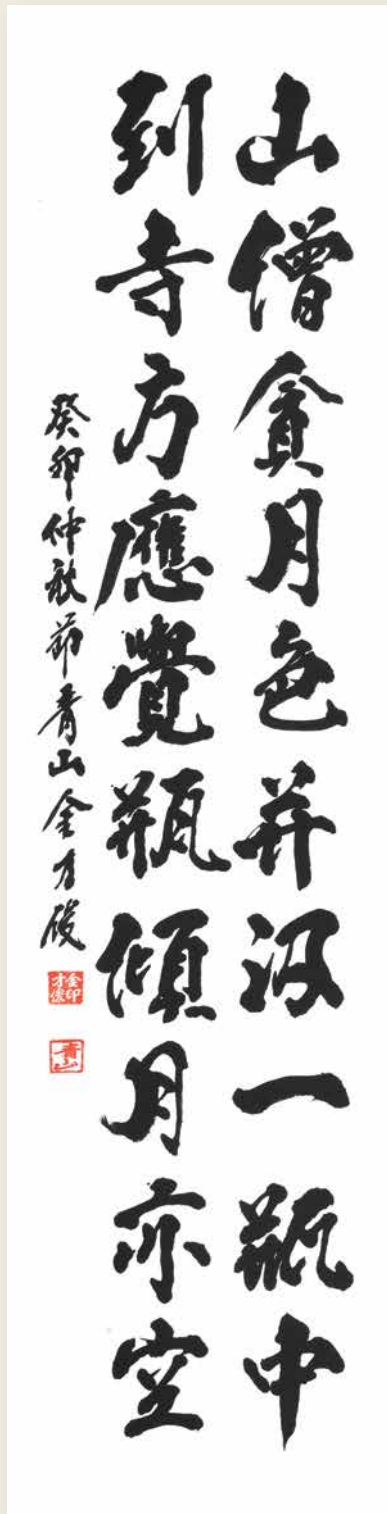 山僧貪月色并汲一瓶中
到寺方應覺瓶傾月亦空
癸卯仲秋節青山金才俊
金印才俊
青山